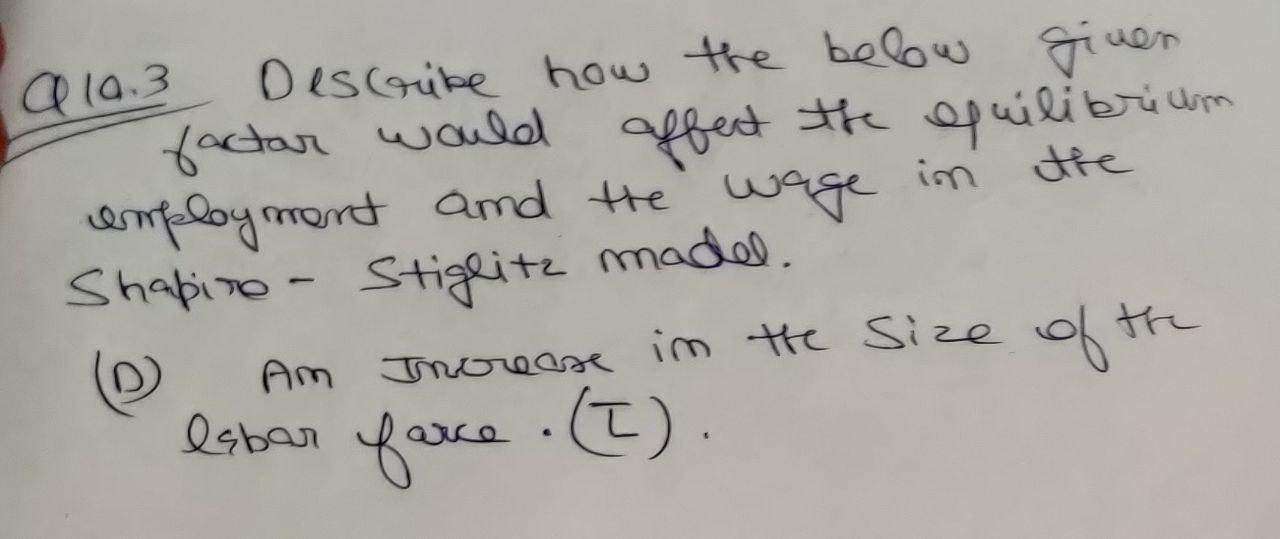 Q10.3 Describe how the below given
factor would affect the equilibrium
employment and the wage in the
Shapiro - Stiglitz model.
(D) An Increase in the Size of the
labor force. (L̅).